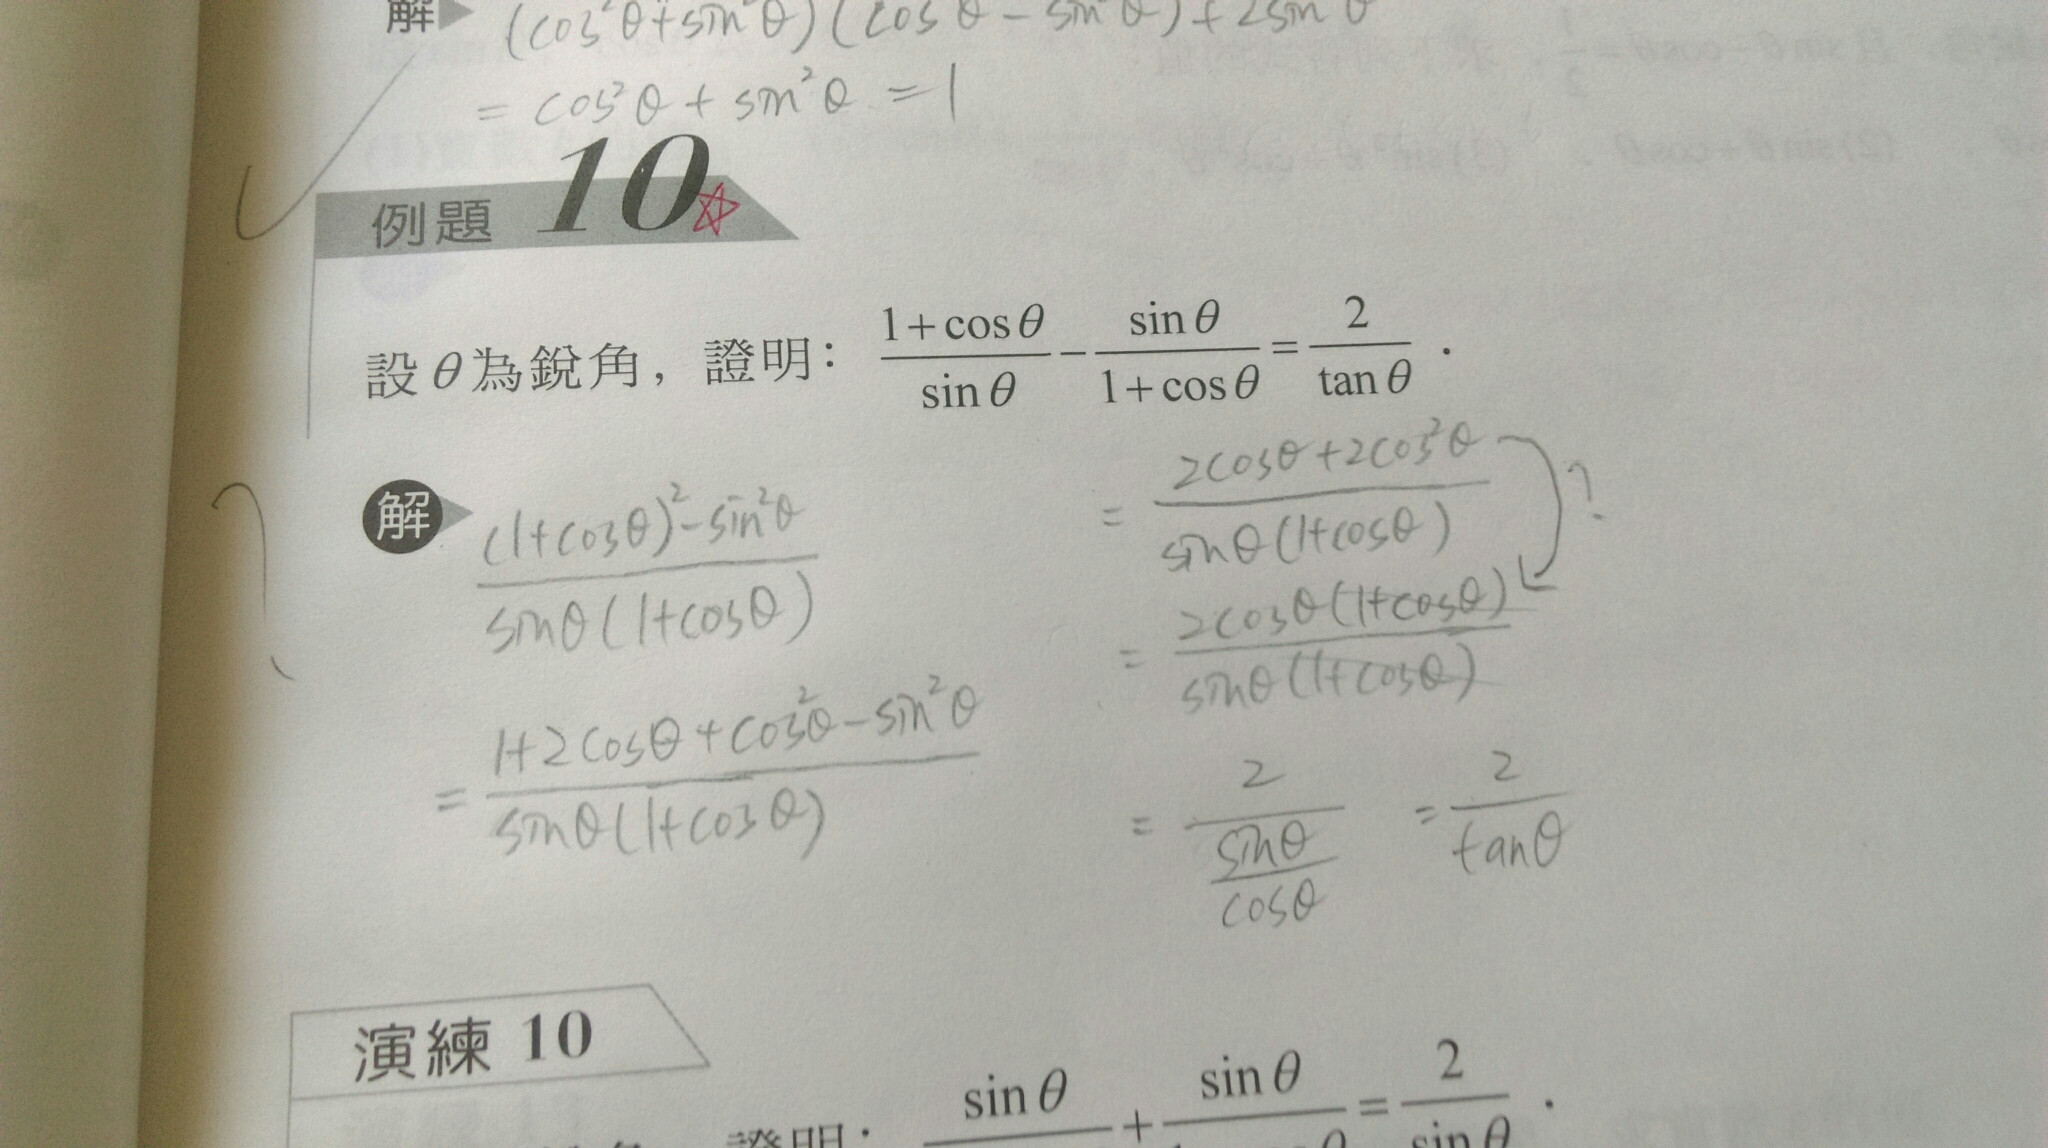 解 (cos²θ+sin²θ)(cos²θ-sin²θ)+2sin²θ
= cos²θ + sin²θ = 1
例題 10
設θ為銳角，證明：(1+cosθ)/sinθ - sinθ/(1+cosθ) = 2/tanθ．
解 ((1+cosθ)²-sin²θ)/(sinθ(1+cosθ))
= (1+2cosθ+cos²θ-sin²θ)/(sinθ(1+cosθ))
= (2cosθ+2cos²θ)/(sinθ(1+cosθ)) ?
= (2cosθ(1+cosθ))/(sinθ(1+cosθ))
= 2/(sinθ/cosθ) = 2/tanθ
演練 10
證明：sinθ + sinθ = 2/sinθ．